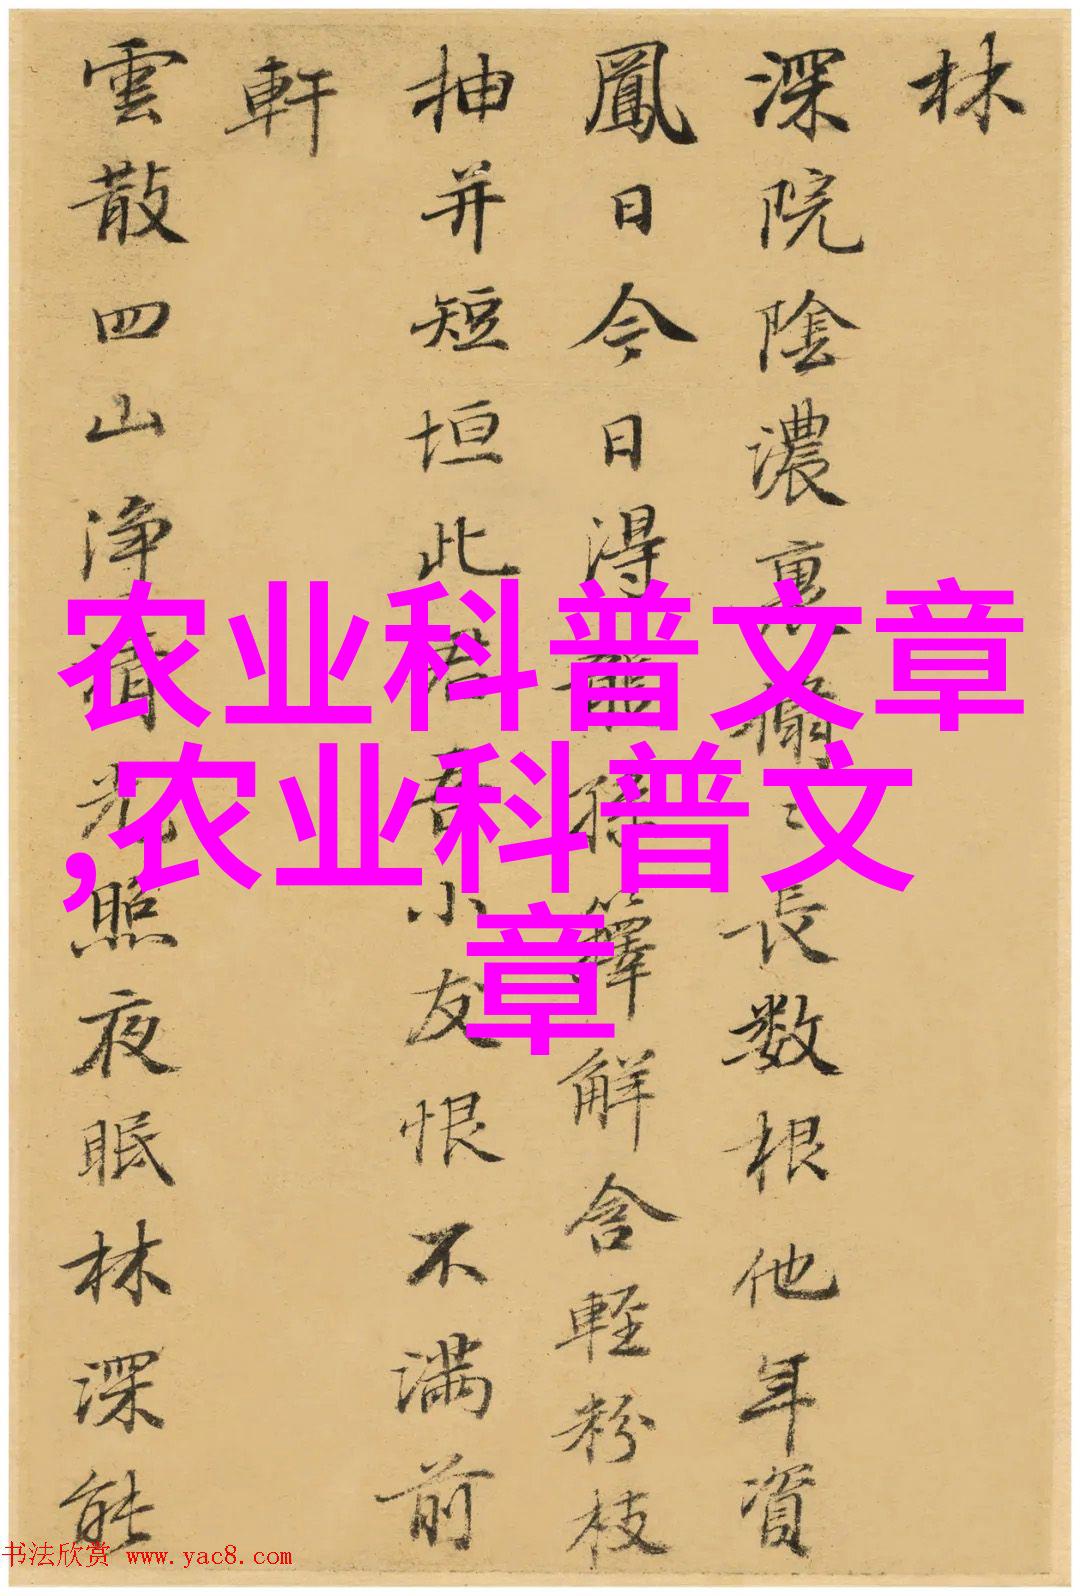 林
深院陰濃裏長数根他年資
鳳日今日得孫籜解含輕粉枝
抽并短垣此君吾小友恨不满前
軒
雲散四山净光照夜眠林深能
农业科普文章
,农业科普文
章
书法欣赏 www.yac8.com